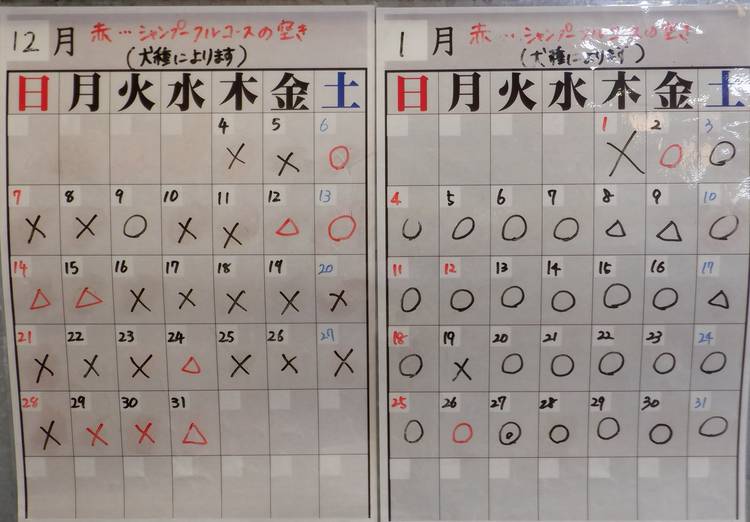 12月 赤…シャンプーフルコースの空き
(犬種によります)
日 月 火 水 木 金 土
4 5 6
× × ○
7 8 9 10 11 12 13
× × ○ × × △ ○
14 15 16 17 18 19 20
△ △ × × × × ×
21 22 23 24 25 26 27
× × × △ × × ×
28 29 30 31
× × × △
1月 赤…シャンプーフルコースの空き
(犬種によります)
日 月 火 水 木 金 土
1 2 3
× ○ ○
4 5 6 7 8 9 10
○ ○ ○ ○ △ △ ○
11 12 13 14 15 16 17
○ ○ ○ ○ ○ ○ △
18 19 20 21 22 23 24
○ × ○ ○ ○ ○ ○
25 26 27 28 29 30 31
○ ○ ◎ ○ ○ ○ ○